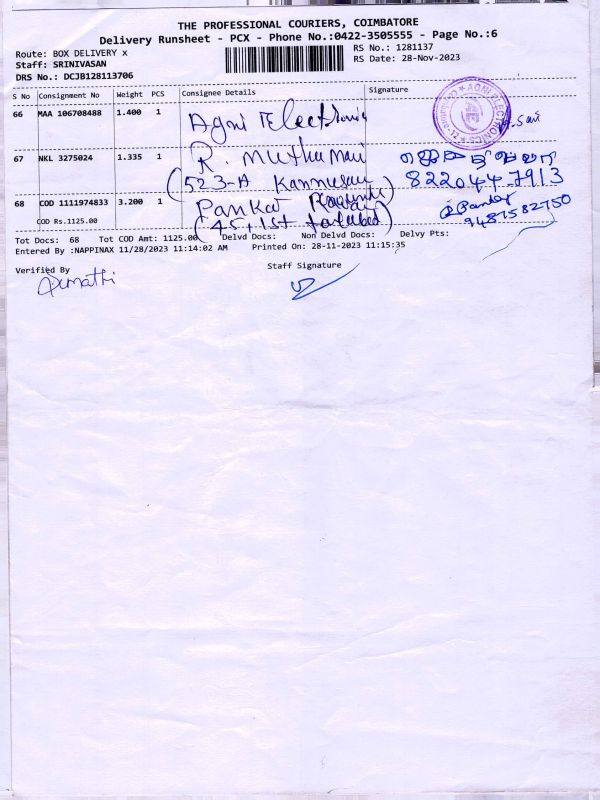 THE PROFESSIONAL COURIERS, COIMBATORE
Delivery Runsheet - PCX - Phone No.:0422-3505555 - Page No.:6
Route: BOX DELIVERY x
RS No.: 1281137
Staff: SRINIVASAN
RS Date: 28-Nov-2023
DRS No.: DCJB128113706
S No Consignment No Weight PCS Consignee Details Signature
66 MAA 106708488 1.400 1 Agni Electronic
67 NKL 3275024 1.335 1 R. Muthu Mari
(523-A 8220447913
68 COD 1111974833 3.200 1 Pankaj
COD Rs.1125.00 (45, 1st 9487582750
Tot Docs: 68 Tot COD Amt: 1125.00 Delvd Docs: Non Delvd Docs: Delvy Pts:
Entered By :NAPPINAX 11/28/2023 11:14:02 AM Printed On: 28-11-2023 11:15:35
Verified By Staff Signature